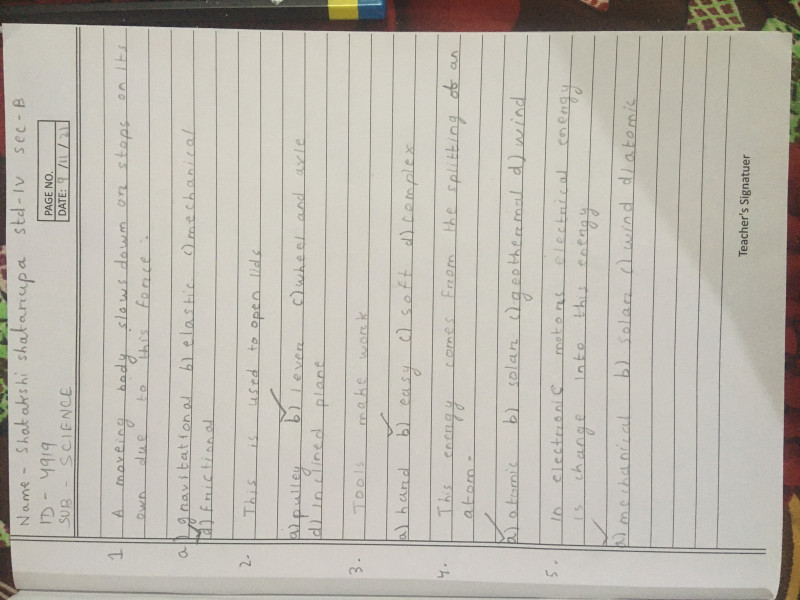 Name - Shatakshi shatarupa std-IV sec-B
ID - 4919
SUB - SCIENCE
PAGE NO.
DATE: 9/11/21
1 A moveing body slows down or stops on its
own due to this force:
a) gravitational b) elastic c) mechanical
d) frictional
2. This is used to open lids
a) pulley b) lever c) wheel and axle
d) inclined plane
3. Tools make work
a) hard b) easy c) soft d) complex
4. This energy comes from the splitting of an
atom.
a) atomic b) solar c) geothermal d) wind
5. In electronic motors electrical energy
is change into this energy
a) mechanical b) solar c) wind d) atomic
Teacher's Signatuer